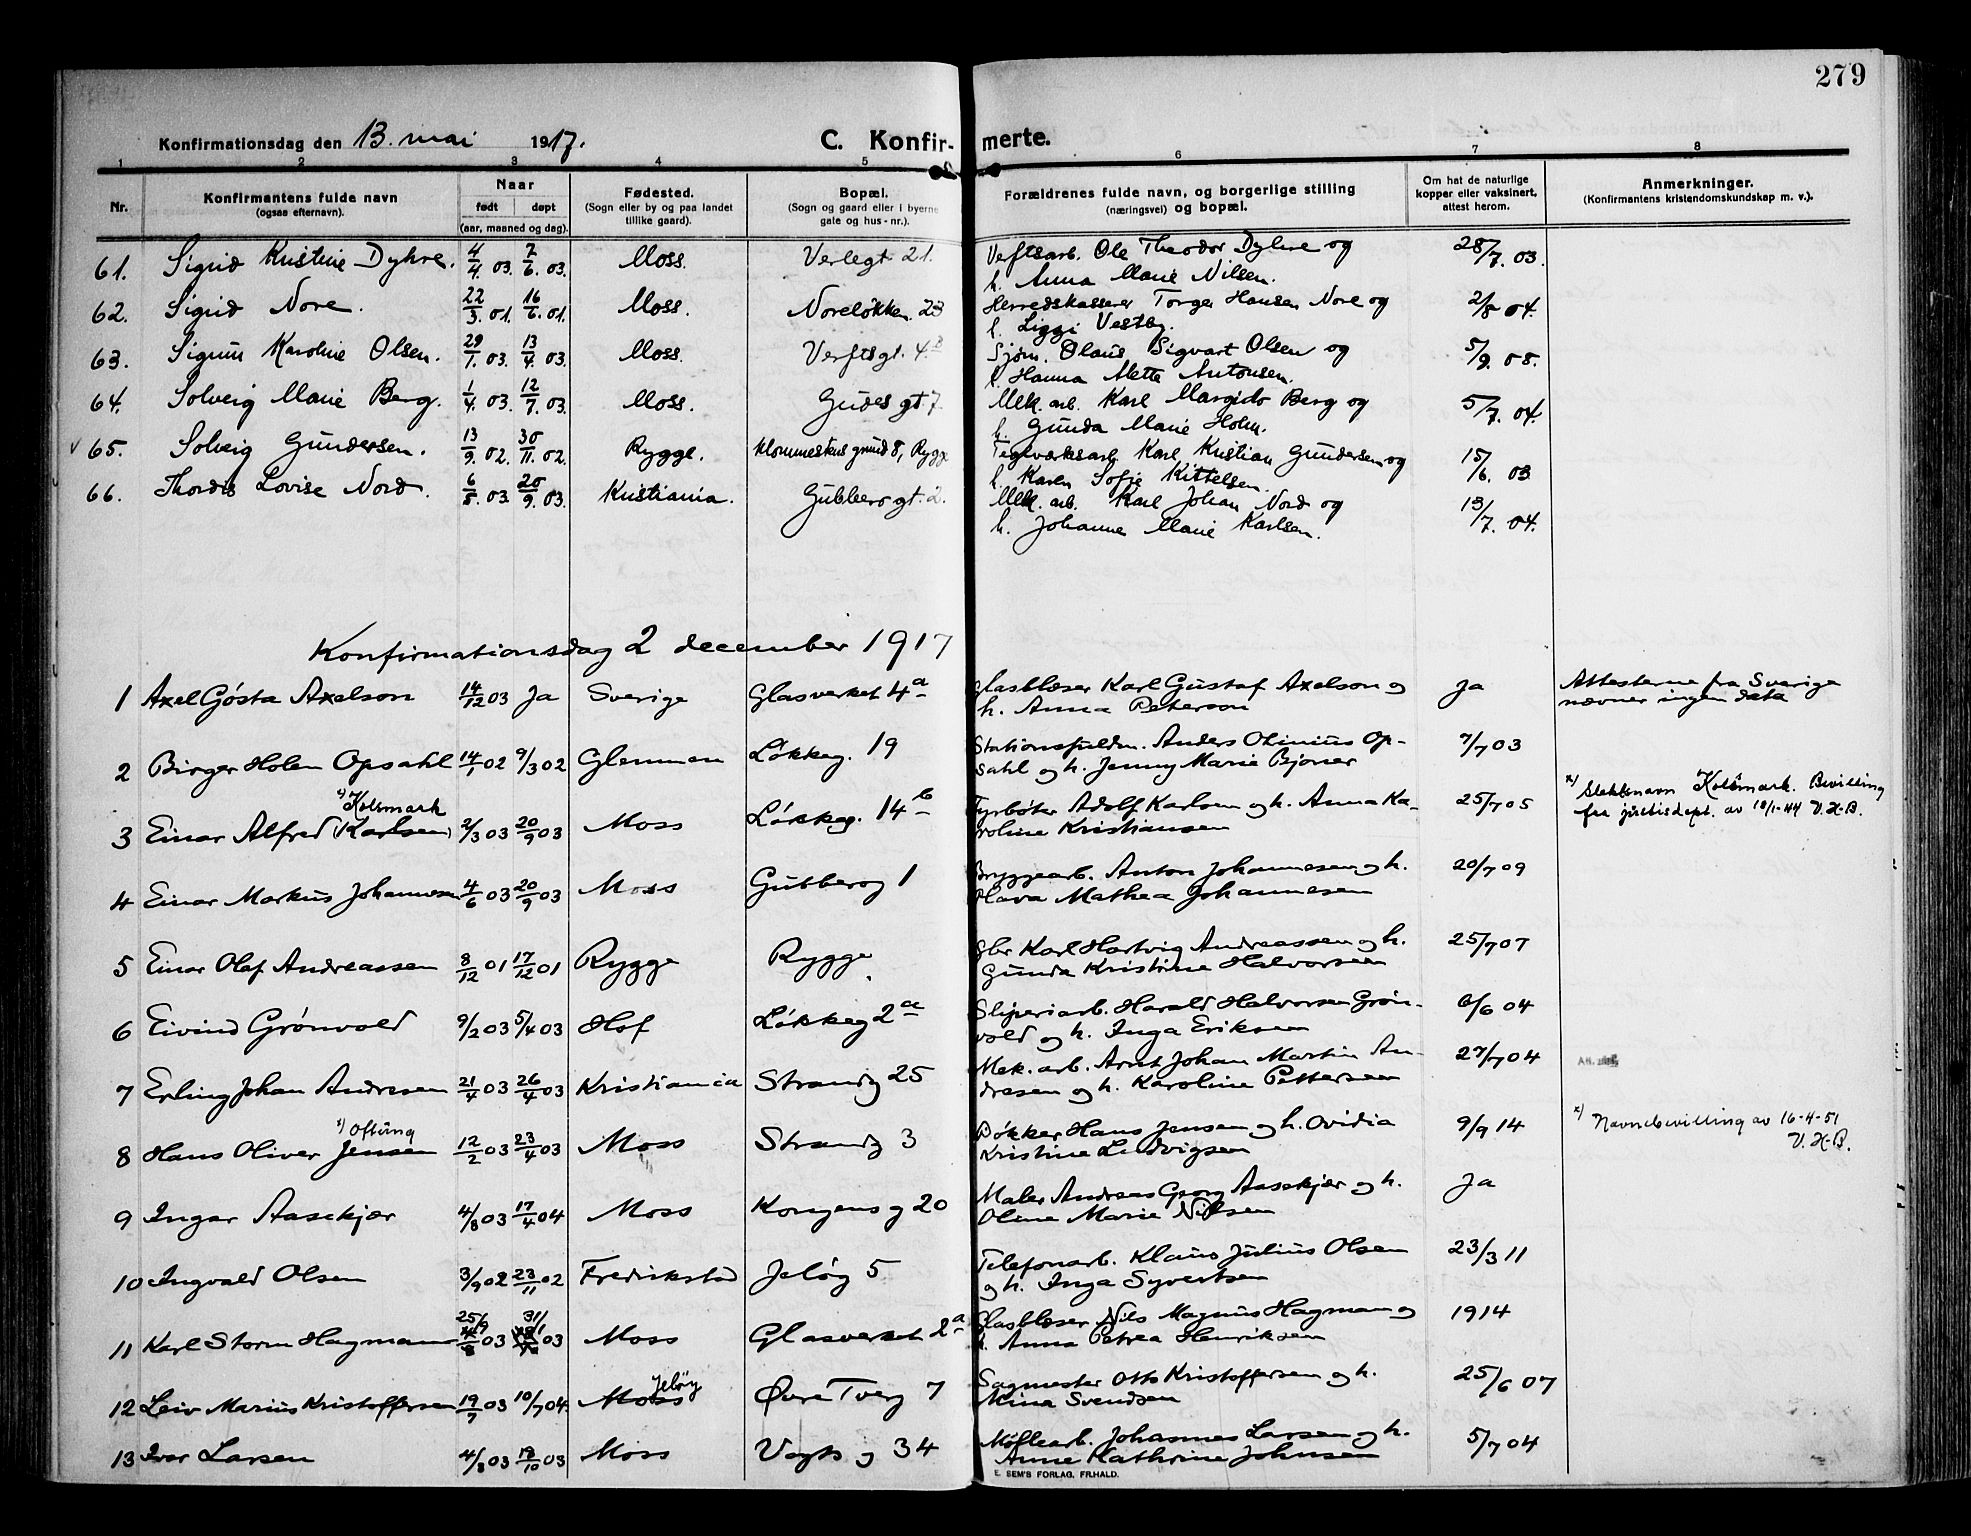 279
Konfirmationsdag den 13. mai 1917.
C. Konfir- merte.
1 2 3 4 5 6 7 8
Nr.
Konfirmantens fulde navn
(ogsaa efternavn).
Naar
født døpt
(aar, maaned og dag).
Fødested.
(Sogn eller by og paa landet
tillike gaard).
Bopæl.
(Sogn og gaard eller i byerne
gate og hus-nr.).
Forældrenes fulde navn, og borgerlige stilling
(næringsvei) og bopæl.
Om hat de naturlige
kopper eller vaksinert,
attest herom.
Anmerkninger.
(Konfirmantens kristendomskundskap m. v.).
61. Sigrid Kristine Dyhre. 4/4 03. 7/6. 03. Moss. Verlegt. 21. Verftsarb. Ole Theodor Dyhre og 28/7. 03.
h. Anna Marie Nilsen.
62. Sigrid Nore. 22/3. 01. 16/6. 01. Moss. Noreløkken 23 Herredskasserer Torger Hansen Nore og 2/8 04.
h. Liggi Vestby.
63. Sigrun Karoline Olsen. 29/1. 03. 13/4. 03. Moss. Verftsgt. 4B Sjøm. Olaus Sigvart Olsen og 5/9. 08.
h. Hanna Mette Antonsen.
64. Solveig Marie Berg. 1/4. 03. 12/7. 03. Moss. Gudes gt 7. Mek. arb. Karl Margido Berg og 5/7. 04.
h. Gunda Marie Holm.
v 65. Solveig Gundersen. 13/9. 02. 30/11. 02. Rygge. grund 8, Rygge Teglverksarb. Karl Kristian Gundersen og 15/6. 03
h. Karen Sofie Kittelsen.
66. Thordis Lovise Nord. 6/8. 03. 20/9. 03. Kristiania. Gubbero gt. 2. Mek. arb. Karl Johan Nord og 13/7. 04.
h. Johanne Marie Karlsen.
Konfirmationsdag 2 december 1917
1 Axel Gösta Axelson 14/12 03 Ja Sverige Glasverket 4a Glasblæser Karl Gustaf Axelson og Ja Attesterne fra Sverige
h. Anna Peterson nævner ingen data
2 Birger Holen Opsahl 14/1 02 9/3 02 Glemmen Løkkeg. 19 Stationsfuldm. Anders Olinius Op- 7/7 03
sahl og h. Jenny Marie Bjoner
x) Kolsmark
3 Einar Alfred (Karlsen) 2/3 03 20/9 03 Moss Løkkeg. 14b Fyrbøter Adolf Karlsen og h. Anna Ka- 25/7 05 x) Slektsnavn Kolsmark. Bevilling
roline Kristiansen fra justisdept. av 18/1-44 V.H-B.
4 Einar Markus Johannesen 4/6 03 20/9 03 Moss Gubberog 1 Bryggearb. Anton Johannesen og h. 20/7 09
Olava Mathea Johannesen
5 Einar Olaf Andreassen 8/12 01 17/12 01 Rygge Rygge Gbr Karl Hartvig Andreassen og h. 25/7 07
Gunda Kristine Halvorsen
6 Eivind Grönvold 9/2 03 5/4 03 Hof Løkkeg 2a Sliperiarb. Harald Halvorsen Grön- 6/6 04
vold og h. Inga Eriksen
7 Erling Johan Andresen 21/4 03 26/4 03 Kristiania Strandg 25 Mek. arb. Arnt Johan Martin An- 27/7 04
dresen og h. Karoline Pettersen
x) Oftung
8 Hans Oliver Jensen 12/2 03 23/4 03 Moss Strandg 3 Bøkker Hans Jensen og h. Ovidia 9/9 14 x) Navnebevilling av 16-4-51
Kristine Ludvigsen V.H-B.
9 Ingar Aasekjær 4/8 03 17/4 04 Moss Kongens g 20 Maler Andreas Georg Aasekjær og h. Ja
Oline Marie Nilsen
10 Ingvald Olsen 3/9 02 23/11 02 Fredrikstad Jeløg 5 Telefonarb. Klaus Julius Olsen 23/3 11
og h. Inga Syvertsen
11 Karl Storm Hagman 25/9 03 31/1 03 Moss Glasverket 2a Glasblæser Nils Magnus Hagman og 1914
h. Anna Petrea Henriksen
Jeløy
12 Leiv Marius Kristoffersen 19/7 03 10/7 04. Moss Øvre Tverg 7 Sagmester Otto Kristoffersen og h. 25/6 07
Mina Svendsen
13 Ivar Larsen 4/8 03 18/10 03 Moss Vogts g 34 Møllearb. Johannes Larsen og h. 5/7 04
Anne Kathrine Johnsen
E. SEM'S FORLAG, FR.HALD.